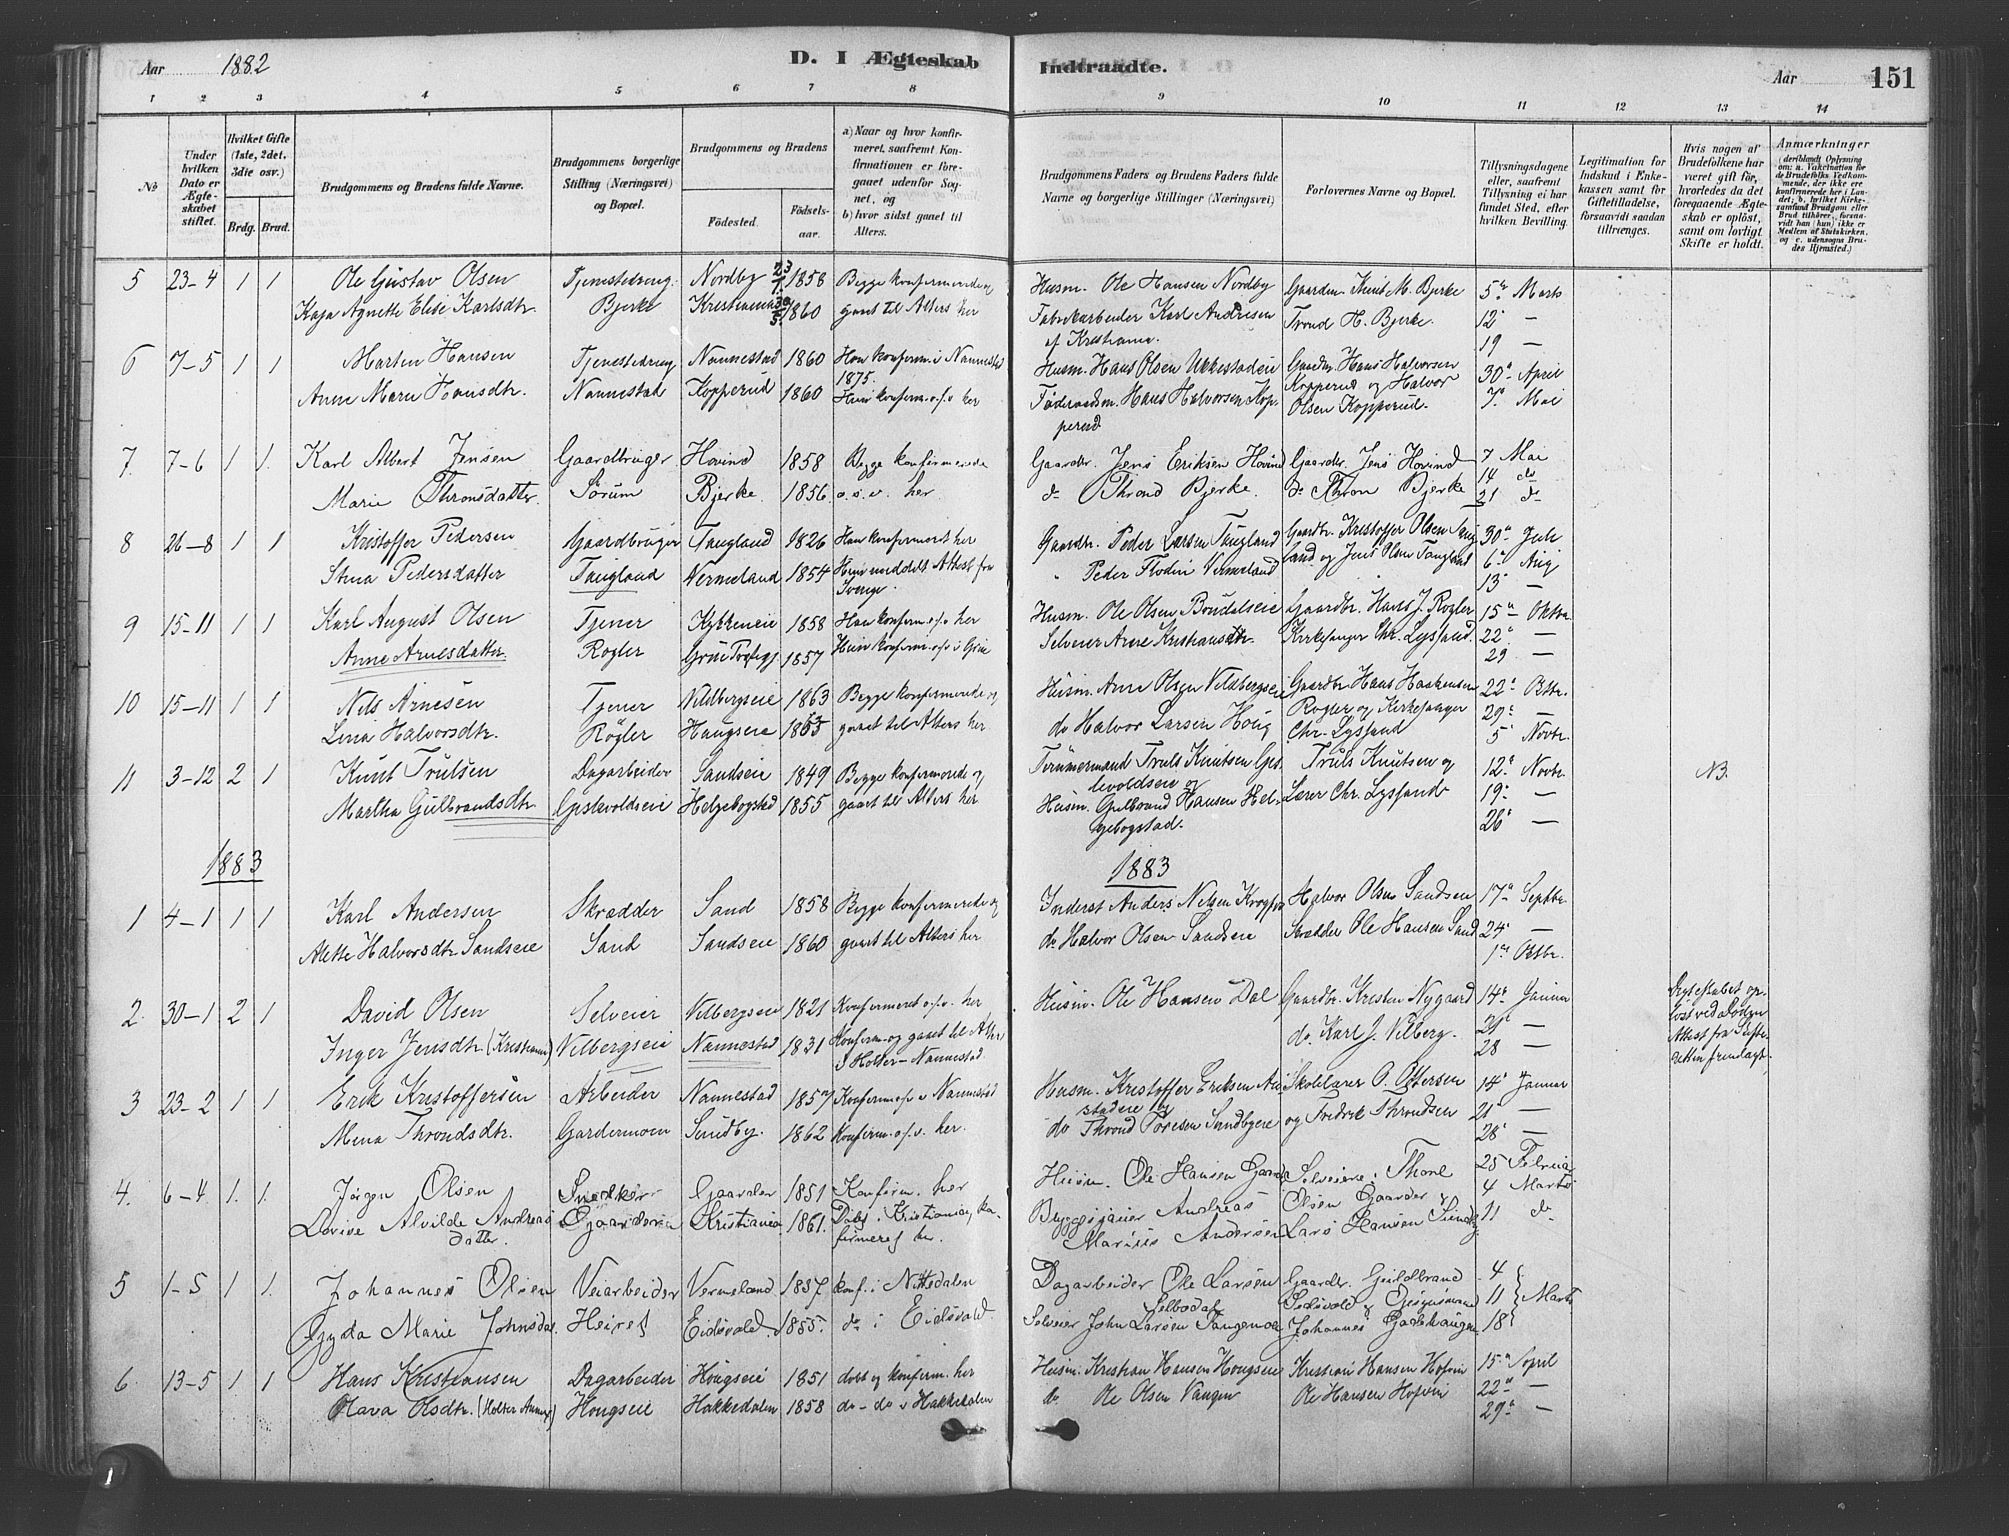 Aar 1882 D. I Ægteskab Indtraadte. Aar 151
1 2 3 4 5 6 7 8 9 10 11 12 13 14
No
Under hvilken Dato er Ægteskabet stiftet.
Hvilket Gifte (1ste, 2det, 3die osv.)
Brdg. Brud.
Brudgommens og Brudens fulde Navne.
Brudgommens borgerlige Stilling (Næringsvei) og Bopæl.
Brudgommens og Brudens
Fødested. Fødsels-aar.
a) Naar og hvor konfirmeret, saafremt Konfirmationen er foregaaet udenfor Sognet, og
b) hvor sidst gaaet til Alters.
Brudgommens Faders og Brudens Faders fulde Navne og borgerlige Stillinger (Næringsvei)
Forlovernes Navne og Bopæl.
Tillysningsdagene eller, saafremt Tillysning ei har fundet Sted, efter hvilken Bevilling.
Legitimation for Indskud i Enkekassen samt for Giftetilladelse, forsaavidt saadan tiltrænges.
Hvis nogen af Brudefolkene har været gift før, hvorledes da det foregaaende Ægteskab er opløst, samt om lovligt Skifte er holdt.
Anmærkninger
(deriblandt Oplysning om: a. Vaccination for de Brudefolks Vedkommende, der ikke ere konfirmerede her i Landet; b. hvilket Kirkesamfund Brudgom eller Brud tilhører, forsaavidt han (hun) ikke er Medlem af Statskirken, og c. udensogns Brudes Hjemsted.)
5 23-4 1 1 Ole Gustav Olsen Tjenestedreng Nordby 23/1 1858 Begge konfirmerede og Husm. Ole Hansen Nordby Gaardm. Knut M. Bjerke 5te Marts
Kaja Agnette Elise Karlsdtr. Bjerke Kristiania 30/5 1860 gaaet til Alters her Fabrikarbeider Karl Andresen Trond H. Bjerke. 12 —
af Kristiania. 19 —
6 7-5 1 1 Marten Hansen Tjenestedreng Nannestad 1860 Han konfirm. i Nannestad Husm. Hans Olsen Ukkestadeie Gaardbr. Hans Halvorsen 30te April
1875.
Anne Marie Hansdtr. Nannestad Kopperud 1860 Hun konfirm. o.s.v. her Føderaadsm. Hans Halvorsen Kopperud Kopperud og Halvor Olsen Kopperud. 7 Mai
7. 7-6 1 1. Karl Albert Jensen Gaardbruger Hovind 1858 Begge konfirmerede Gaardbr. Jens Eriksen Hovind Gaardbr. Jens Hovind 7 Mai
14 do
Marie Thronsdatter. Sørum Bjerke 1856. o.s.v. her. do Thrond Bjerke. do Thron Bjerke 21 do
8 26-8 1 1 Kristoffer Pedersen Gaardbruger Tangland 1826 Han konfirmeret her Gaardbr. Peder Larsen Tangland Gaardbr. Kristoffer Olsen Tang- 30te Juli
Stina Pedersdatter Tangland Vermeland 1854 Hun meddelt Attest fra Sverige. " Peder Flodin Vermeland land og Jens Olsen Tangland 6te Aug
13 —
9 15-11 1 1 Karl August Olsen Tjener 1858 Han konfirm. o.s.v. her Husm. Ole Olsen Gaardbr. Hans J. Røgler 15te Oktbr.
Anne Arnesdatter Røgler 1857 Hun konfirm. o.s.v. i Grue Selveier Arne Kristiansen Kirkesanger Chr. Lyssand. 22 —
29 —
10 15-11 1 1 Nils Arnesen Tjener Vilbergseie 1863 Begge konfirmerede og Husm. Arne Olsen Vilbergseie Gaardbr. Hans Haakensen 22 Oktbr.
Lina Halvorsdtr. Røgler Haugseie gaaet til Alters her do Halvor Larsen Houg Røgler og Kirkesanger Chr. Lyssand 29 —
5 Novbr.
11 3-12 2 1 Knut Trulsen Dagarbeider Sandseie 1849 Begge konfirmerede og Tømmermand Truls Knutsen Gislevoldseie og Truls Knutsen og 12te Novbr. NB.
Martha Gulbrandsdtr. Gislevoldseie Helgebogstad 1855 gaaet til Alters her Husm. Gulbrand Hansen Helgebogstad. Lærer Chr. Lyssand 19 —
26 —
1883 1883
1 4-1 1 1 Karl Andersen Skrædder Sand 1858 Begge konfirmerede og Inderst Anders Nilsen Halvor Olsen Sandseie 17te Septbr.
Alette Halvorsdtr. Sandseie Sand Sandseie 1860 gaaet til Alters her do Halvor Olsen Sandseie Skrædder Ole Hansen Sand 24 —
1ste Oktbr.
2. 30-1 2 1 David Olsen Selveier Vilbergseie 1821 Konfirmeret o.s.v. her Husm. Ole Hansen Dal Gaardbr. Kristen Nygaard 14te Januar Ægteskabet opløst ved Døden
Inger Jensdtr (Kristiansd) Vilbergseie Nannestad 1831 Konfirm. og gaaet til Alters i Holter-Nannestad do. Karl J. Vilberg. 21 — Attest fra Skifteretten fremlagt.
28 —
3 23-2 1 1 Erik Kristoffersen Arbeider Nannestad 1857 Konfirm. o.s.v. i Nannestad Husm. Kristoffer Eriksen Skolelærer O. Ottersen 14 Januar
Mina Throndsdtr. Gardermoen Sundby. 1862 Konfirm. o.s.v. her. do Thrond Toresen Sundbyeie og Fredrik Throndsen 21 —
28 —
4. 6-4. 1. 1. Jørgen Olsen Snedker Gaarder 1851 Konfirm. her Husm. Ole Hansen Selveiere: Thore 25 Februar
Lovise Alvilde Andreasdatter. Gaarderei Kristiania 1861. Døbt i Kristiania, konfirmeret her. Byggesjauer Andreas Marius Andersen Olsen Gaarder, Lars Hansen Sundby 4 Marts
11 do
5 1-5 1 1. Johannes Olsen Veiarbeider Vermeland 1857 konf. i Nittedalen Dagarbeider Ole Larsen Gaardbr. Guldbrand 4
Gyda Marie Johnsda. Eidsvold. 1855. do i Eidsvold. Selveier John Larsen Johannes 11 Marts
18
6 13-5 1. 1 Hans Kristiansen Dagarbeider Hougseie 1851 døbt og konfirm. her Husm. Kristian Hansen Hougseie Kristian Hansen Hofvin 15te April
Olava Olsdtr. (Holter Annex) Hougseie Hakkedalen 1858 do - do i Hakkedalen do. Ole Olsen Vangen Ole Hansen Hofvin 22 —
29 —